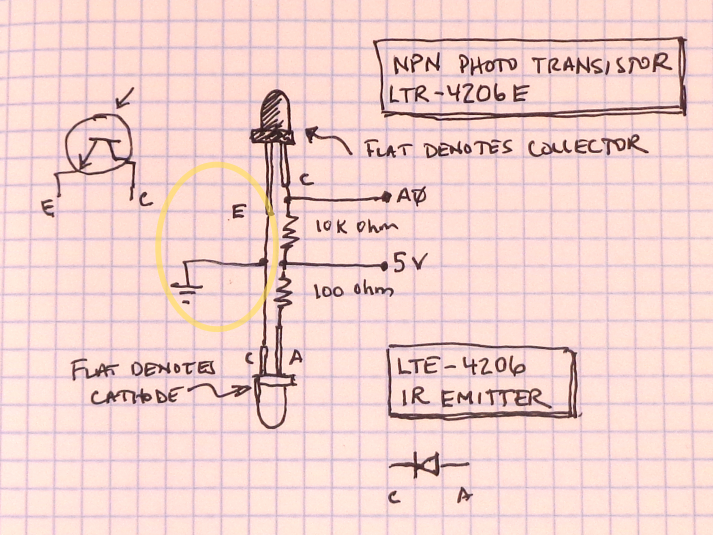 NPN PHOTO TRANSISTOR
LTR-4206E
FLAT DENOTES COLLECTOR
E C
C
A0
E
10K Ohm
5V
100 Ohm
C A
FLAT DENOTES
CATHODE
LTE-4206
IR EMITTER
C A